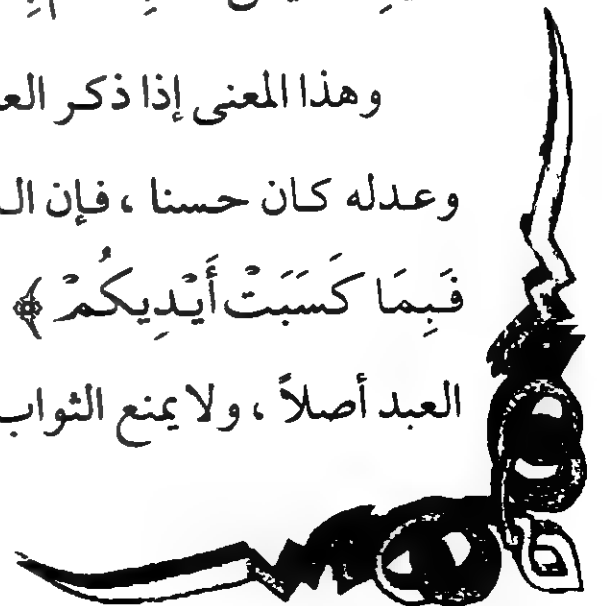 وهذا المعنى إذا ذكر
وعدله كان حسنا ، فإن
فَبِمَا كَسَبَتْ أَيْدِيكُمْ ﴾
العبد أصلاً ، ولا يمنع الثواب